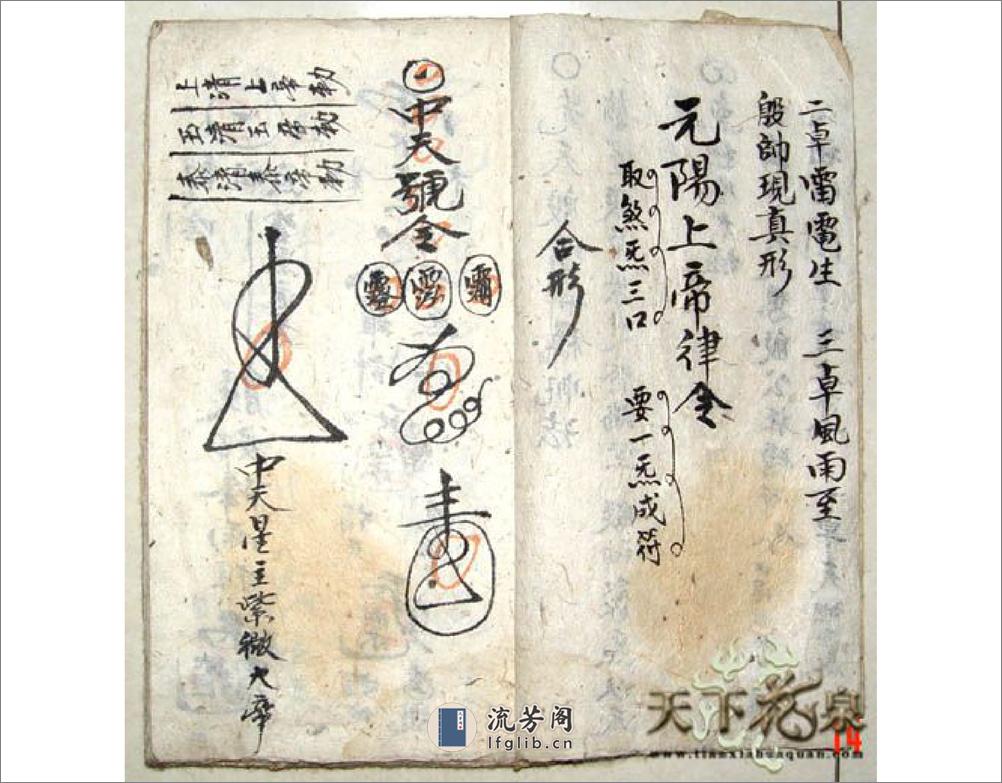 二卓雷電生　三卓風雨至
殷帥現真形
元陽上帝律令
取煞炁三口　要一炁成符
合形
中天號令
上清上帝勅
玉清玉帝勅
泰清泰帝勅
中天星主紫微大帝
流芳阁
lfglib.cn
天下花泉
www.tianxiahuaquan.com
14